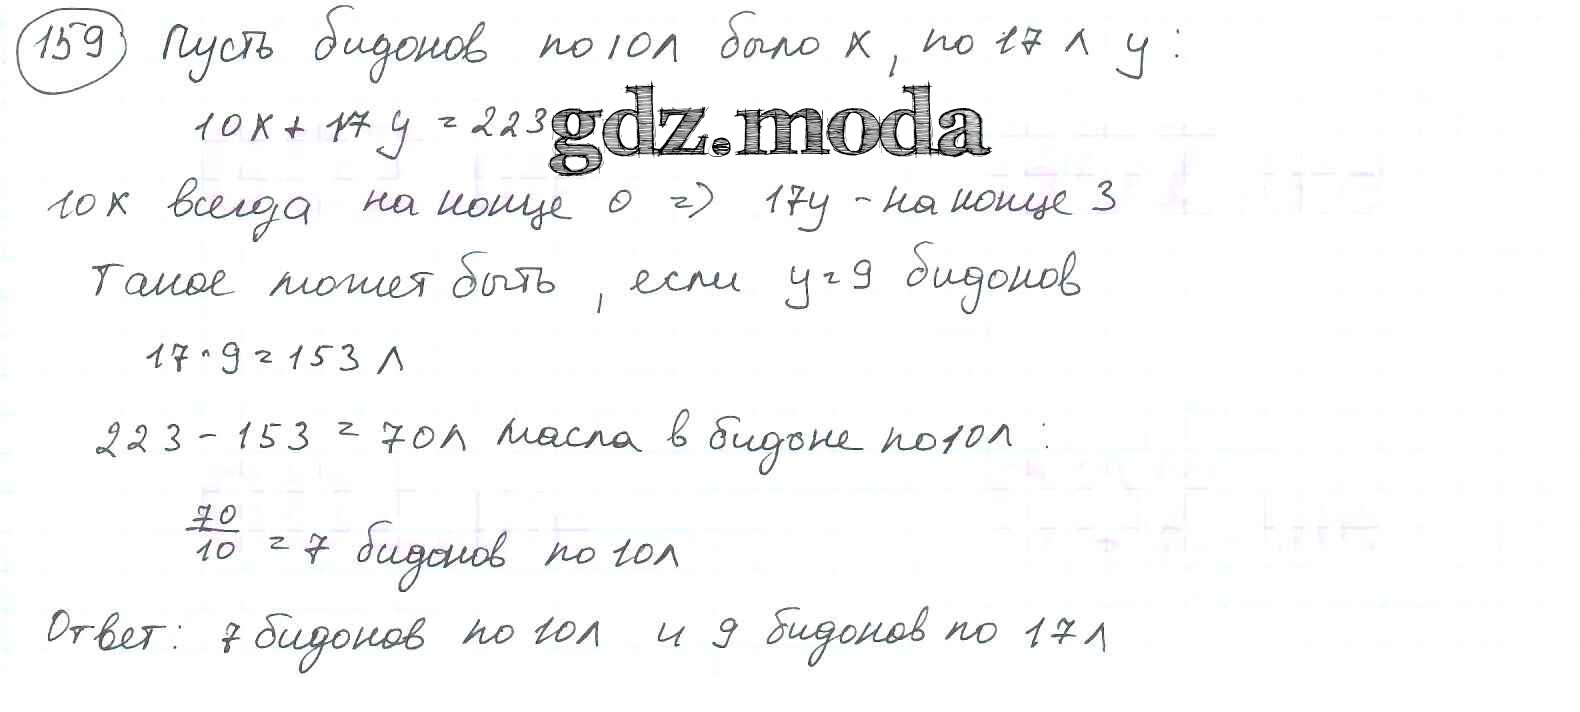 159 Пусть бидонов по 10л было x, по 17 л y:
10x + 17y = 223 gdz.moda
10x всегда на конце 0 => 17y - на конце 3
Такое может быть, если y = 9 бидонов
17 · 9 = 153 л
223 - 153 = 70л масла в бидоне по 10л:
70/10 = 7 бидонов по 10л
Ответ: 7 бидонов по 10л и 9 бидонов по 17л